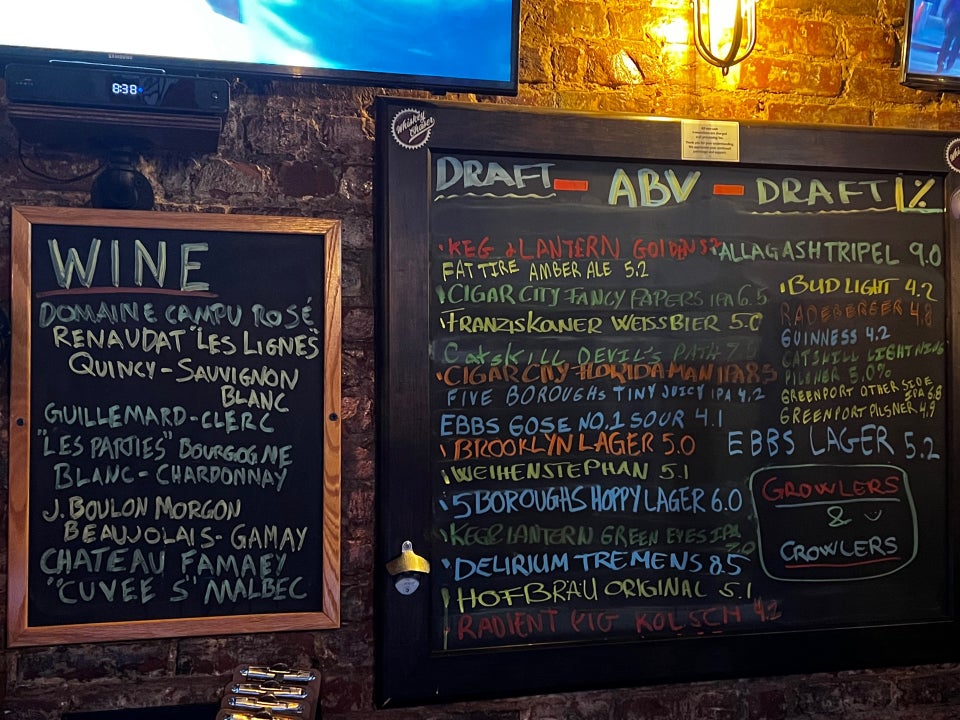 SAMSUNG
8:38
WINE
DOMAINE CAMPU ROSÉ
RENAUDAT "LES LIGNES"
QUINCY - SAUVIGNON
BLANC
GUILLEMARD - CLERC
"LES PARTIES" BOURGOGNE
BLANC - CHARDONNAY
J. BOULON MORGON
BEAUJOLAIS - GAMAY
CHATEAU FAMAEY
"CUVEE S" MALBEC
Whiskey Chaser
DRAFT - ABV - DRAFT %
KEG & LANTERN GOLDEN
FAT TIRE AMBER ALE 5.2
CIGAR CITY FANCY PAPERS IPA 6.5
FRANZISKANER WEISSBIER 5.0
CATSKILL DEVIL'S PATH
CIGAR CITY FLORIDA MAN IPA 8.5
FIVE BOROUGHS TINY JUICY IPA 4.2
EBBS GOSE NO.1 SOUR 4.1
BROOKLYN LAGER 5.0
WEIHENSTEPHAN 5.1
5 BOROUGHS HOPPY LAGER 6.0
KEG LANTERN GREEN EYES IPA
DELIRIUM TREMENS 8.5
HOFBRÄU ORIGINAL 5.1
RADIENT PIG KOLSCH 4.2
ALLAGASH TRIPEL 9.0
BUD LIGHT 4.2
RADEBERGER 4.8
GUINNESS 4.2
CATSKILL LIGHTNING
PILSNER 5.0%
GREENPORT OTHER SIDE
IPA 6.8
GREENPORT PILSNER 4.9
EBBS LAGER 5.2
GROWLERS
&
CROWLERS